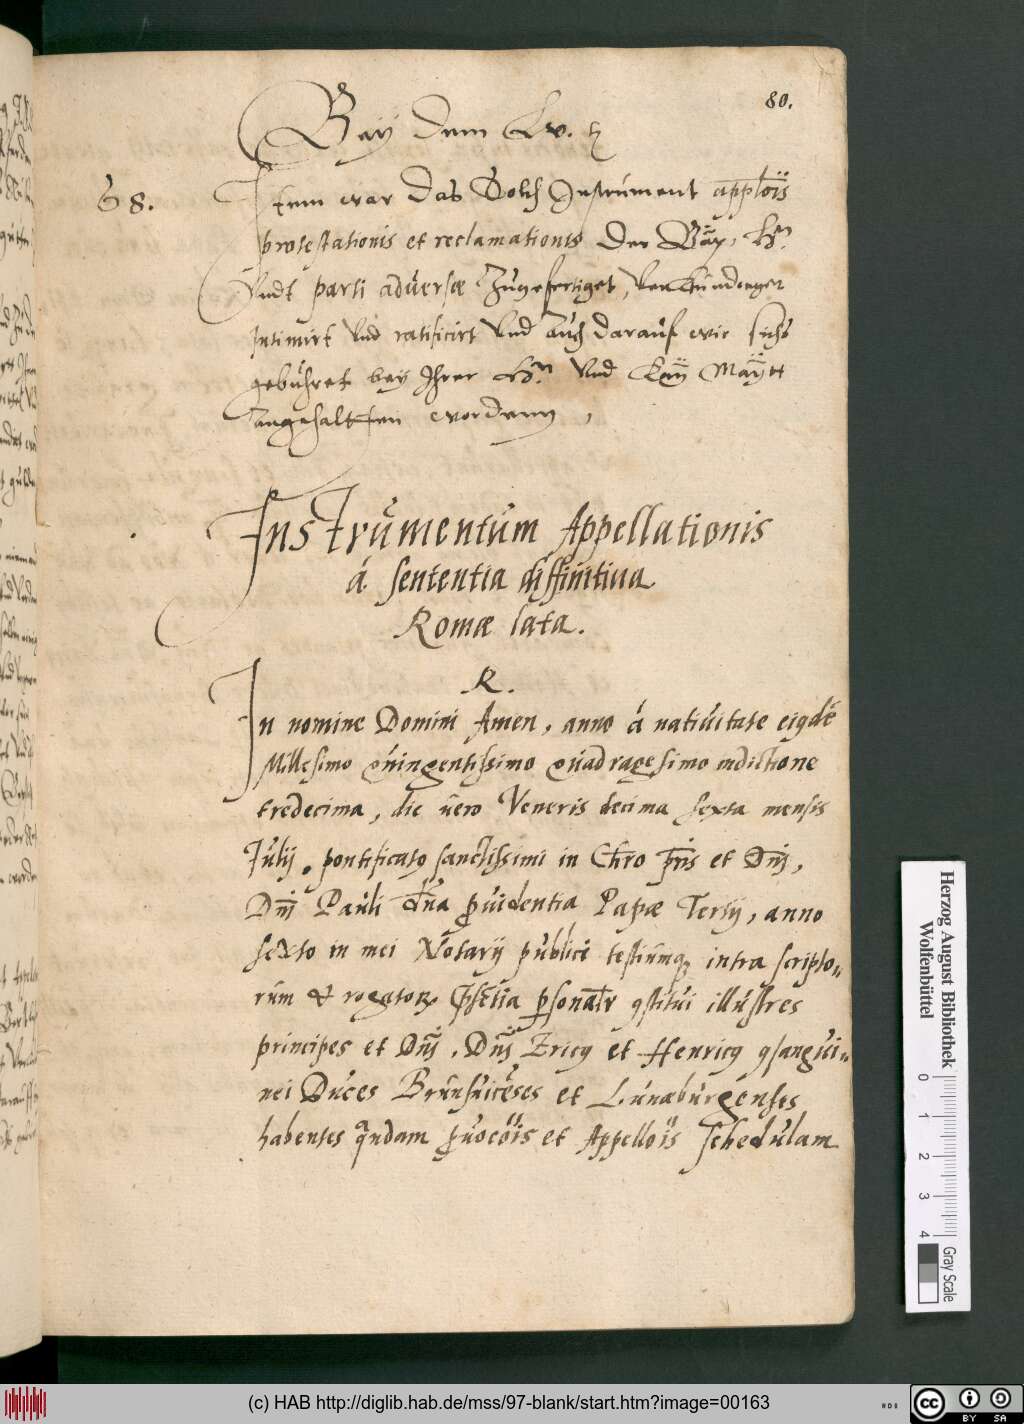 80.
Bay dem Lit. h
68.
Item war das Solch Instrument appłois
protestationis et reclamationis Der Bäp. Hn.
Undt parti adversæ Zugefertiget, verkündenget
Intimirt Und ratificirt Und Auch darauf wie sichs
gebühret bey Ihrer Hn. Und Kay Maytt
angehalten worden,
Instrumentum Appellationis
á sententia diffinitiua
Romæ lata.
R.
In nomine Domini Amen, anno á natiuitate eiꝰdē
Millesimo quingentissimo quadragesimo indictione
tredecima, die uero Veneris decima sexta mensis
Julij, pontificatꝰ sanctissimi in Chro pris et Dnj,
Dnj Pauli dīna ꝓuidentia Papæ Tertij, anno
sexto in mei Notarij publici testiumqꝫ infra scripto„
rum & rogatoꝝ p̄sētia ꝑsonalr ꝯstitui illustres
principes et Dnj, Dnj Ericꝰ et Henricꝰ ꝯsangui„
nei Duces Brunsuicēses et Lunæburgenses
habentes quandam ꝓuocōis et Appellōis schedulam
Herzog August Bibliothek
Wolfenbüttel
0 1 2 3 4
Gray Scale
(c) HAB http://diglib.hab.de/mss/97-blank/start.htm?image=00163
cc BY SA